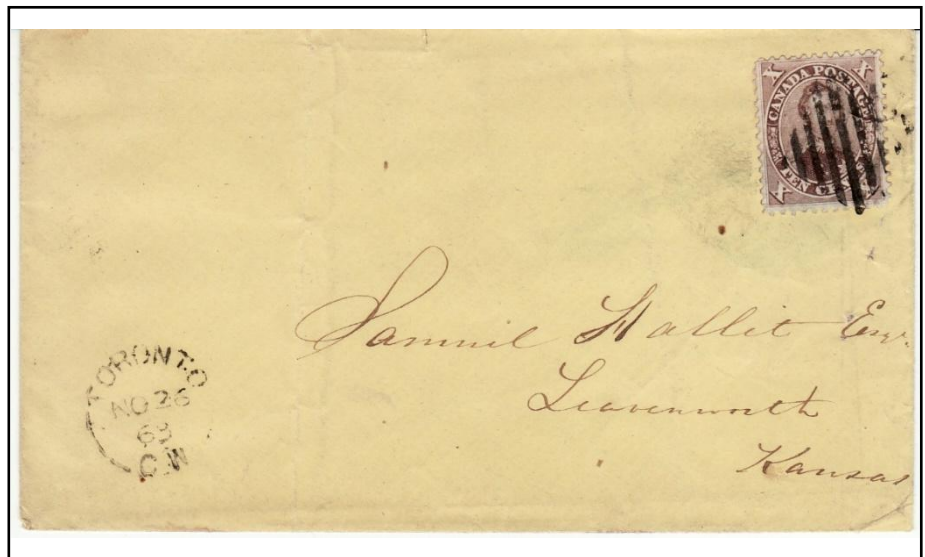 CANADA POSTAGE
TEN CEN
X X X
Samuel Hallit Esqr.
Leavenworth
Kansas
TORONTO
NO 26
63
C.W